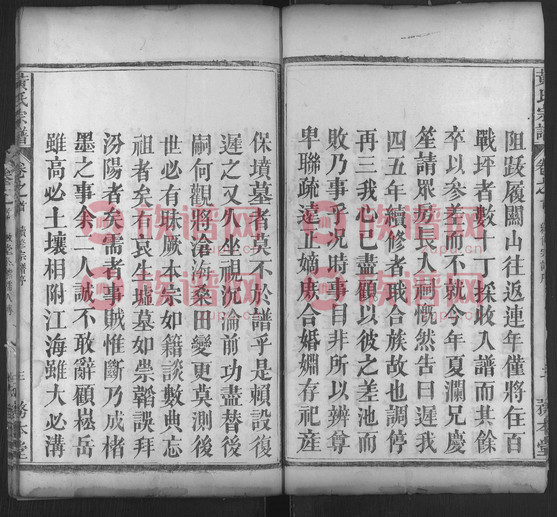 黃氏宗譜
卷之首
阻踄履關山往返連年僅將住百
戰坪者數丁採收入譜而其餘
卒以參差而不就今年夏瀾兄慶
笙請房長人詞慨然告曰遲我
四五年續修者我合族故也調停
再三我心已盡顧以彼之差池而
敗乃事乎況時事日非所以辨尊
卑聯疏遠正嫡庶合婚婣存祀產
保墳墓者莫不於譜乎是賴設復
遲之又久坐視沉淪前功盡替後
嗣何觀將滄海桑田變更莫測後
世必有昧厥本宗如籍談數典忘
祖者矣有哀生墟墓如崇韜誤拜
汾陽者矣需者事賊惟斷乃成楮
墨之事余二人誠不敢辭顧崧岳
雖高必土壤相附江海雖大必溝
黃氏宗譜
卷之首
三
務本堂
族谱网